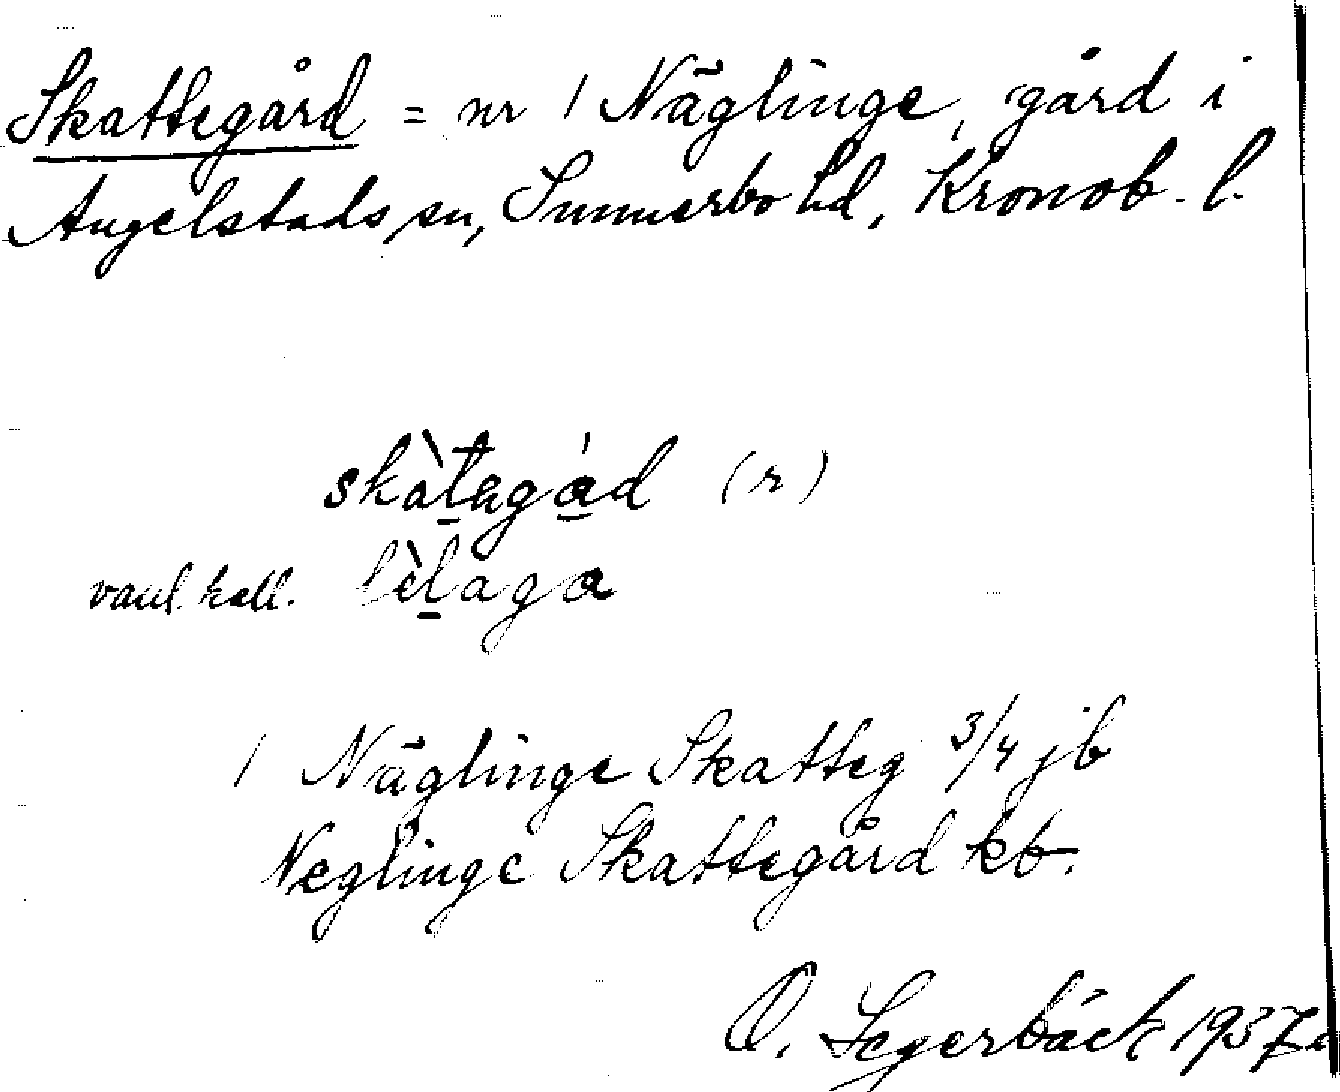 Skattegård = nr 1 Näglinge, gård i
Angelstads sn, Sunnerbo hd, Kronob. l.
skàtegád (r)
vanl. kall. lèlaga
1 Näglinge Skatteg 3/4 jb
Neglinge Skattegård kb.
O. Segerbäck 1937